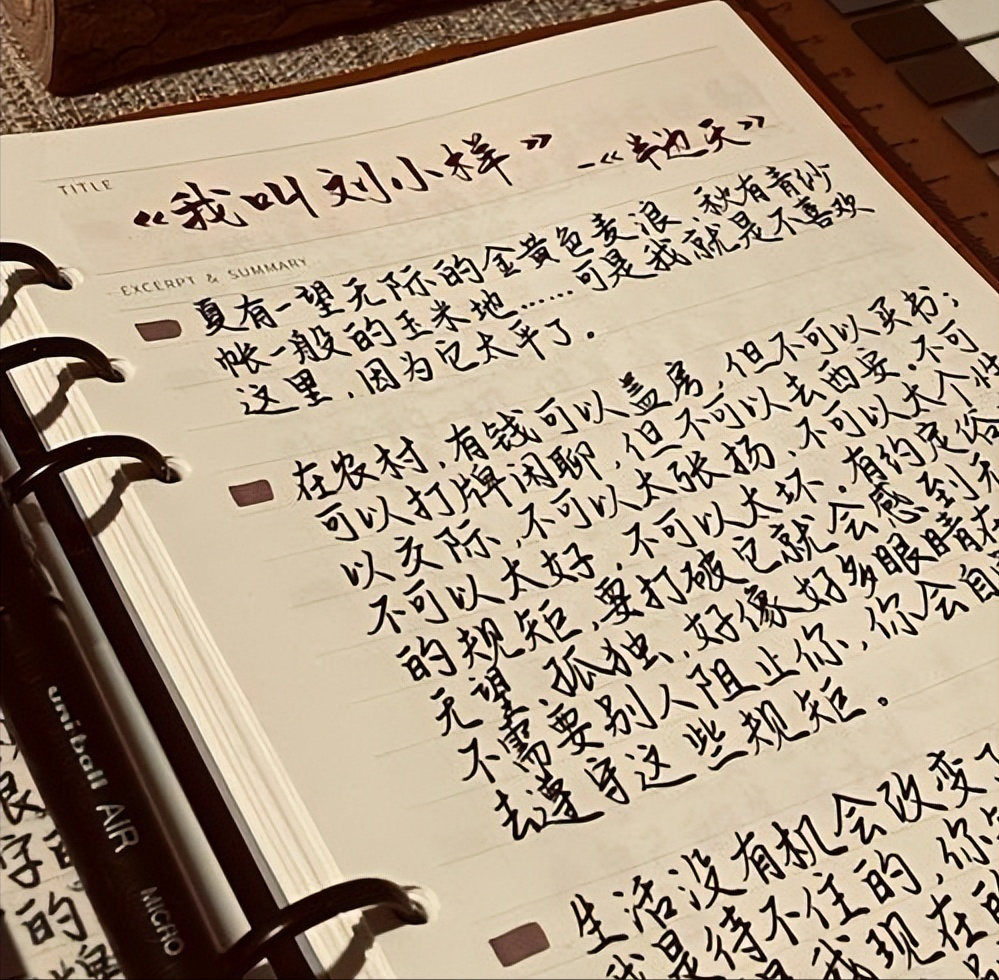 TITLE
《我叫刘小样》 —《半边天》
EXCERPT & SUMMARY
夏有一望无际的金黄色麦浪,秋有青纱
帐一般的玉米地……可是我就是不喜欢
这里,因为它太平了。
在农村,有钱可以盖房,但不可以买书;
可以打牌闲聊,但不可以去西安。不可
以交际,不可以太张扬,不可以太个性
不可以太好,不可以太坏。有约定俗
的规矩,要打破它就会感到无
无望、孤独,好像好多眼睛在
不需要别人阻止你,你会自
去遵守这些规矩。
生活没有机会改变了
我是待不住的,你
是我现在的
uni-ball AIR
MICRO
字
的